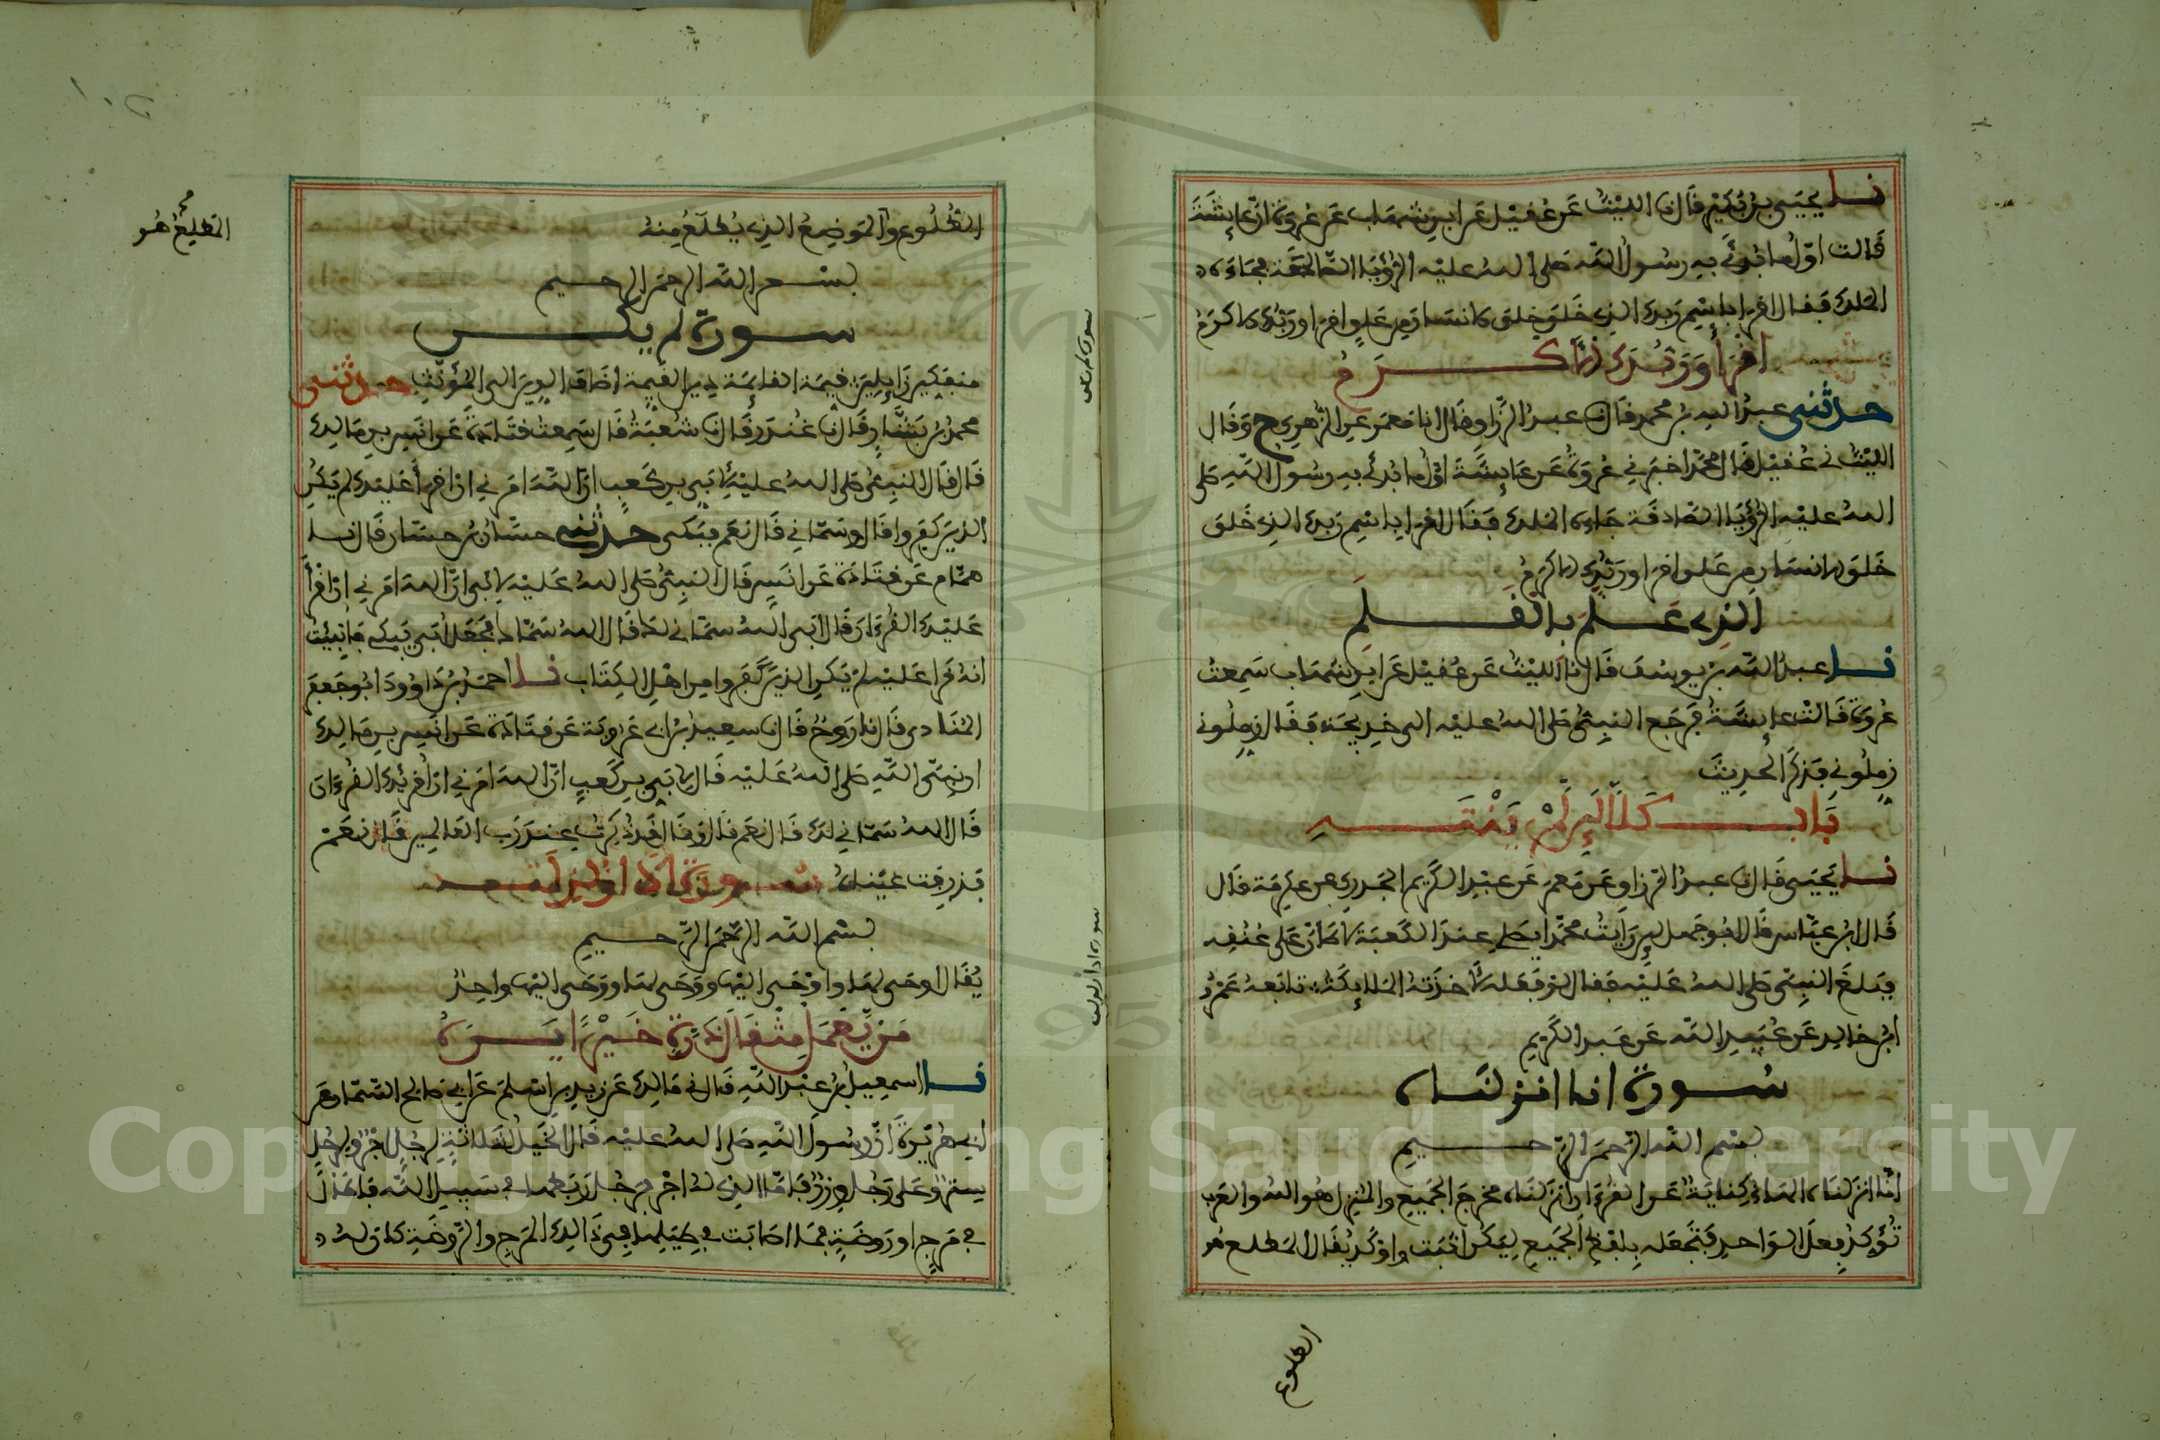 نا يحيى بن بكير قال نا الليث عن عقيل عن ابن شهاب عن عروة ان عايشة
قالت اول ما بدئ به رسول الله صلى الله عليه الرؤيا الصالحة فجاءه
الملك فقال اقرا باسم ربك الذي خلق خلق الانسان من علق اقرا وربك الاكرم
اقرأ وربك الاكرم
حدثني عبد الله بن محمد قال نا عبد الرزاق قال انا معمر عن الزهري ح وقال
الليث ني عقيل قال محمد اخبرني عروة عن عايشة اول ما بدئ به رسول الله صلى
الله عليه الرؤيا الصادقة جاءه الملك فقال اقرا باسم ربك الذي خلق
خلق الانسان من علق اقرا وربك الاكرم
الذي علم بالقلم
نا عبد الله بن يوسف قال نا الليث عن عقيل عن ابن شهاب سمعت
عروة قالت عايشة فرجع النبي صلى الله عليه الى خديجة فقال زملوني
زملوني فذكر الحديث
باب كلا لين لم ينته
نا يحيى قال نا عبد الرزاق عن معمر عن عبد الكريم الجزري عن عكرمة قال
قال ابن عباس قال ابو جهل لين رايت محمدا يصلي عند الكعبة لاطان على عنقه
فبلغ النبي صلى الله عليه فقال لو فعله لاخذته الملايكة تابعه عمرو
ابن خالد عن عبيد الله عن عبد الكريم
سورة انا انزلناه
بسم الله الرحمن الرحيم
انا انزلناه الهاء كناية عن القرءان انزلناه مخرج الجميع والمنزل هو الله والعرب
تؤكد فعل الواحد فتجعله بلفظ الجميع ليكن اثبت واوكد يقال المطلع هو
الطلوع
المطلع هو
الطلوع والموضع الذي يطلع منه
بسم الله الرحمن الرحيم
سورة لم يكن
منفكين زايلين قيمة القايمة دين القيمة اضاف الدين الى المؤنث حدثني
محمد بن بشار قال نا غندر قال نا شعبة قال سمعت قتادة عن انس بن مالك
قال قال النبي صلى الله عليه لابي بن كعب ان الله امرني ان اقرأ عليك لم يكن
الذين كفروا قال وسماني قال نعم فبكى حدثني حسان بن حسان قال نا
همام عن قتادة عن انس قال النبي صلى الله عليه لابي ان الله امرني ان اقرأ
عليك القرءان قال ابي الله سماني لك قال الله سماك فجعل ابي يبكي فانبئت
انه قرا عليه لم يكن الذين كفروا من اهل الكتاب نا احمد بن داوود ابو جعفر
المنادي قال نا روح قال نا سعيد بن ابي عروبة عن قتادة عن انس بن مالك
ان نبي الله صلى الله عليه قال لابي بن كعب ان الله امرني ان اقريك القرءان
قال الله سماني لك قال نعم قال وقد ذكرت عند رب العالمين قال نعم
فذرفت عيناه سورة اذا زلزلت
بسم الله الرحمن الرحيم
يقال اوحى لها واوحى اليها ووحى لها ووحى اليها واحد
من يعمل مثقال ذرة خيرا يره
نا اسمعيل بن عبد الله قال ني مالك عن زيد بن اسلم عن ابي صالح السمان عن
ابي هريرة ان رسول الله صلى الله عليه قال الخيل لثلاثة لرجل اجر ولرجل
ستر وعلى رجل وزر فاما الذي له اجر فرجل ربطها في سبيل الله فاطال
في مرج او روضة فما اصابت في طيلها في ذلك المرج والروضة كان له
سورة لم يكن
سورة اذا زلزلت
Copyright © King Saud University
1957